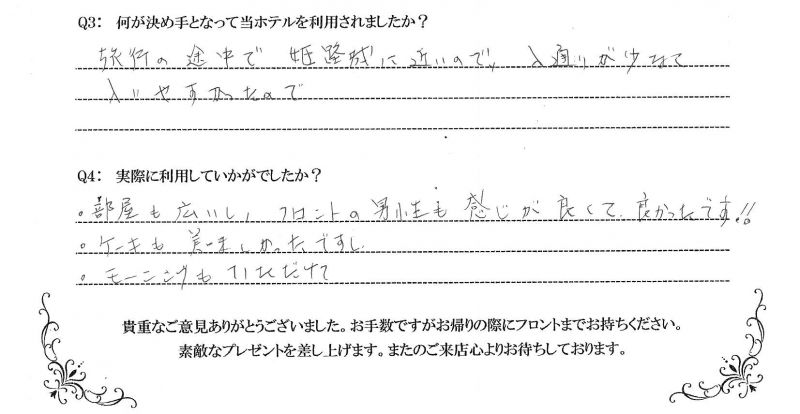 Q3: 何が決め手となって当ホテルを利用されましたか？
旅行の途中で 姫路城に近いので、人通りが少なくて
入りやすかったので
Q4: 実際に利用していかがでしたか？
・部屋も広いし、フロントの男性も感じが良くて、良かったです!!
・ケーキも美味しかったですし
・モーニングもいただけて
貴重なご意見ありがとうございました。お手数ですがお帰りの際にフロントまでお持ちください。
素敵なプレゼントを差し上げます。またのご来店心よりお待ちしております。